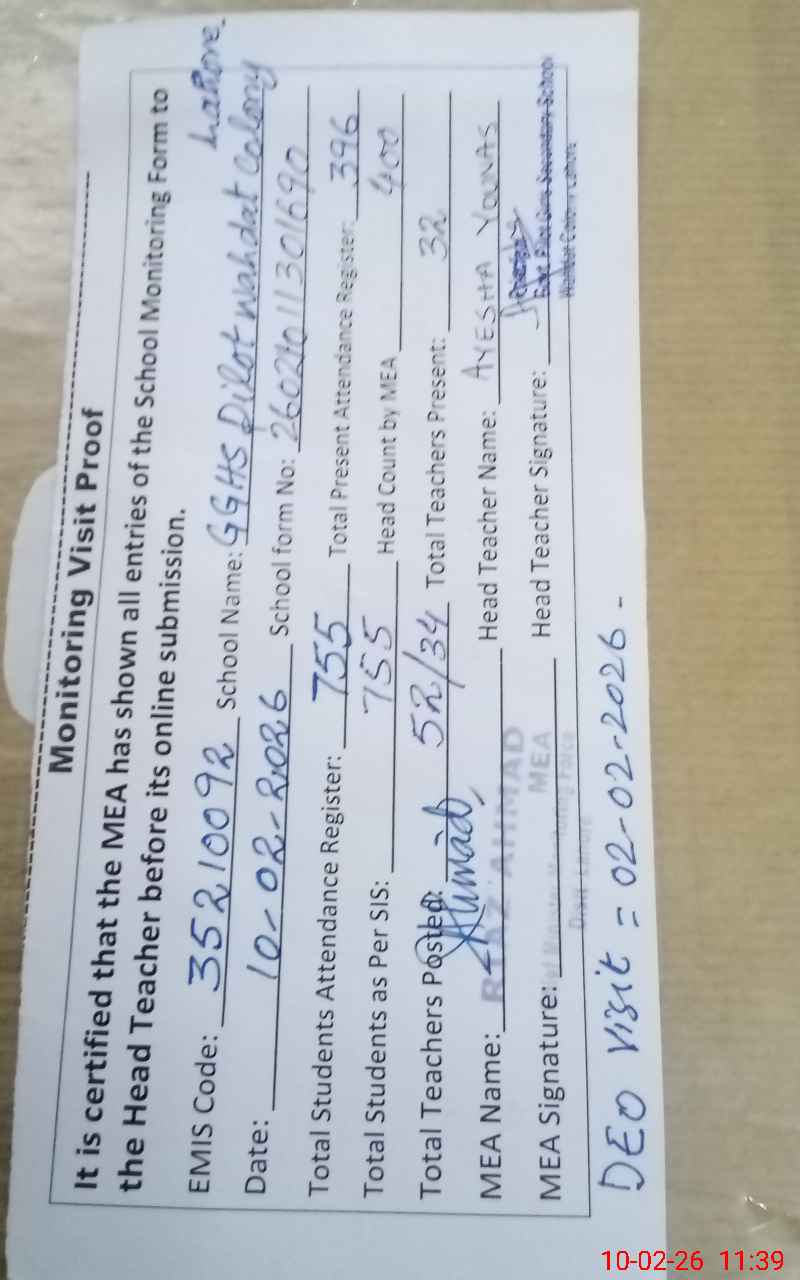 Monitoring Visit Proof
It is certified that the MEA has shown all entries of the School Monitoring Form to
the Head Teacher before its online submission.
EMIS Code: 35210092 School Name: GGHS Pilot Wahdat Colony Lahore
Date: 10-02-2026 School form No:
Total Students Attendance Register: 755 Total Present Attendance Register: 396
Total Students as Per SIS: 755 Head Count by MEA 400
Total Teachers Posted: 52/34 Total Teachers Present: 32
MEA Name: AHMAD Head Teacher Name: AYESHA YOUNAS
MEA Signature: MEA Head Teacher Signature:
Wahdat Colony Lahore
DEO Visit = 02-02-2026-
10-02-26 11:39